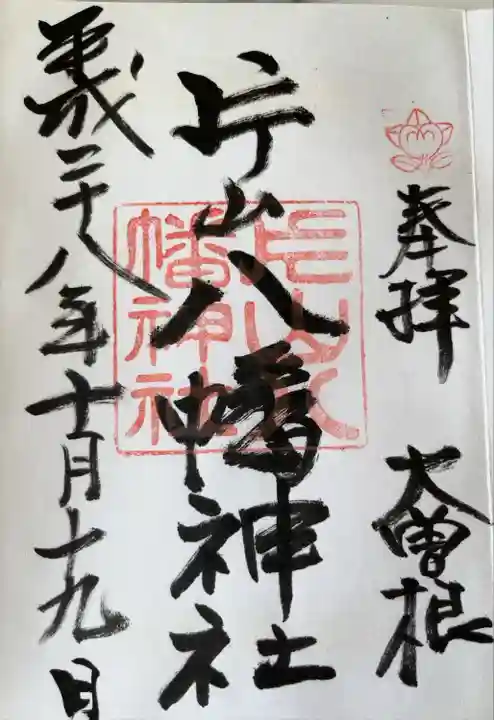 奉拝　大曽根
片山八幡神社
平成二十八年十一月十九日
片山八
幡神社